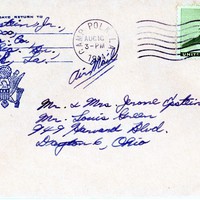 RETURN TO
stein Jr.,
Co.
La.
CAMP POL
AUG 16
3-PM
Air Mail
UNIT
Mr. & Mrs Jerome Epstein
Mr. Louis Green
949 Harvard Blvd.
Dayton 6, Ohio